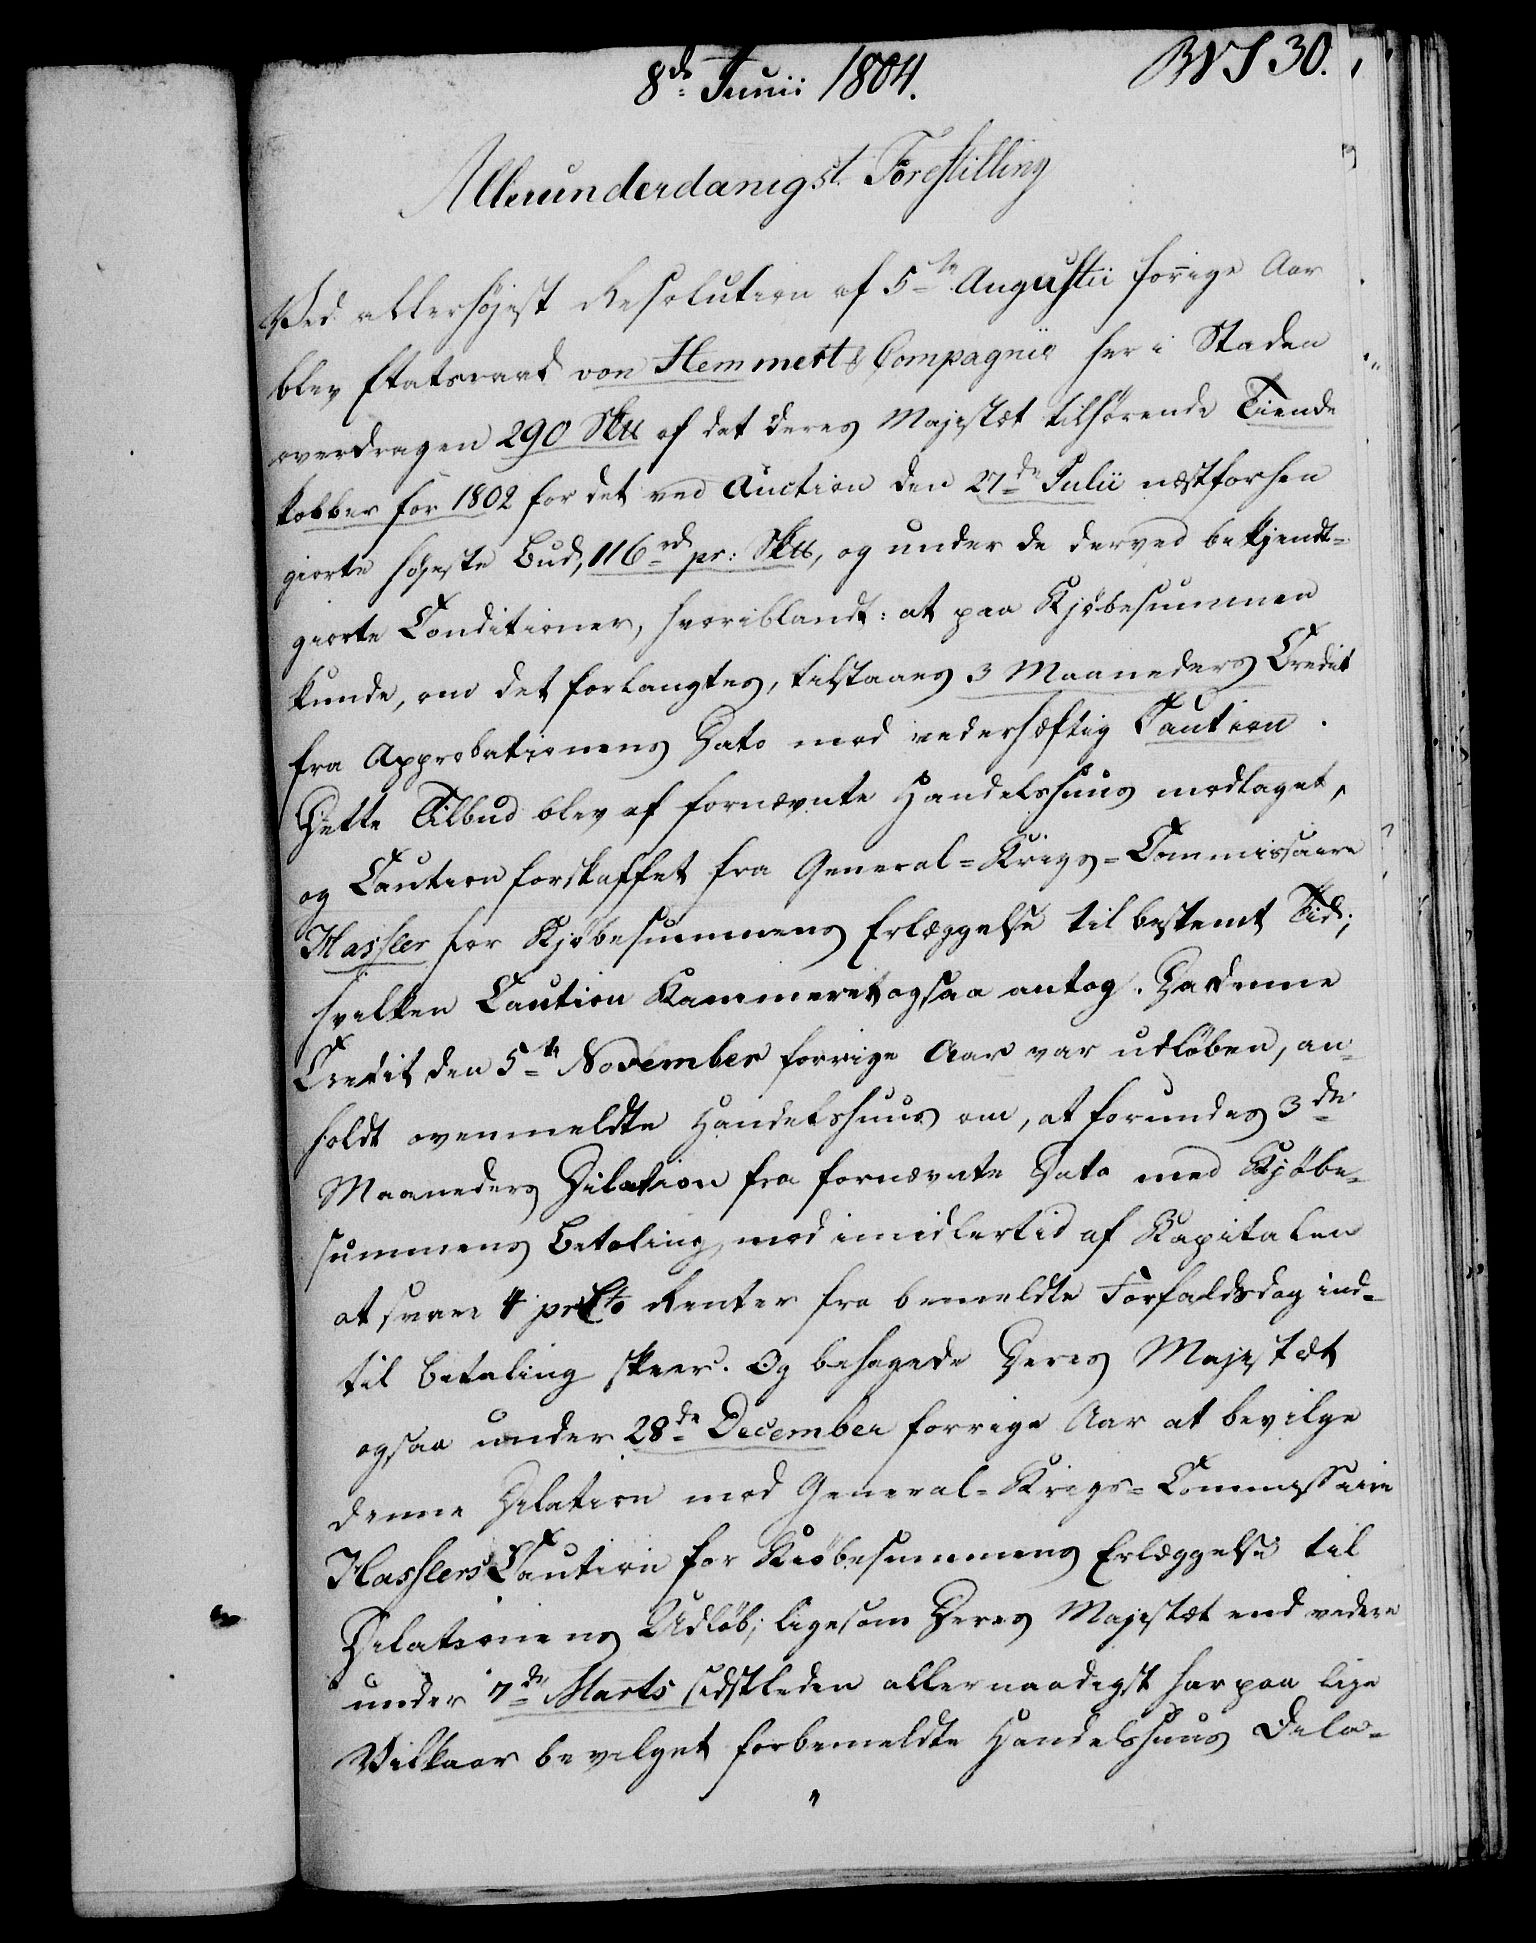 8de Junii 1804.
30.
Allerunderdanigst Forestilling
Ved allerhöjest Resolution af 5te Augustii forrige Aar
blev Etatsraad von Hemmert & Compagnie her i Staden
overdragen 290 Sktt af det Deres Majestæt tilhörende Tiende
kobber for 1802 for det ved Auction den 27de Julii næstforhen
giorte höjeste Bud, 116 rd pr: Sktt, og under de derved bekjendt-
giorte Conditioner, hvoriblandt: at paa Kjöbesummen
kunde, om det forlangtes, tilstaaes 3 Maaneders Credit
fra Approbationens Dato mod vederhæftig Caution.
Dette Tilbud blev af fornævnte Handelshuus modtaget,
og Caution forskaffet fra General-Krigs-Commissaire
Hassler for Kjöbesummens Erlæggelse til bestemt Tid;
hvilken Caution Kammeret ogsaa antog. Da denne
Credit den 5te November forrige Aar var udlöben, an-
holdt ovenmeldte Handelshuus om, at forundes 3de
Maaneders Dilation fra fornævnte Dato med Kjöbe-
summens Betaling, mod imidlertid af Kapitalen
at svare 4 prCto Renter fra bemeldte Forfaldsdag ind-
til Betaling skeer. Og behagede Deres Majestæt
ogsaa under 28de December forrige Aar at bevilge
denne Dilation mod General-Krigs-Commissaire
Hasslers Caution for Kiöbesummens Erlæggelse til
Dilationens Udløb; ligesom Deres Majestæt end videre
under 7de Marts sidstleden allernaadigst har paa lige
Vilkaar bevilget forbemeldte Handelshuus Dila-